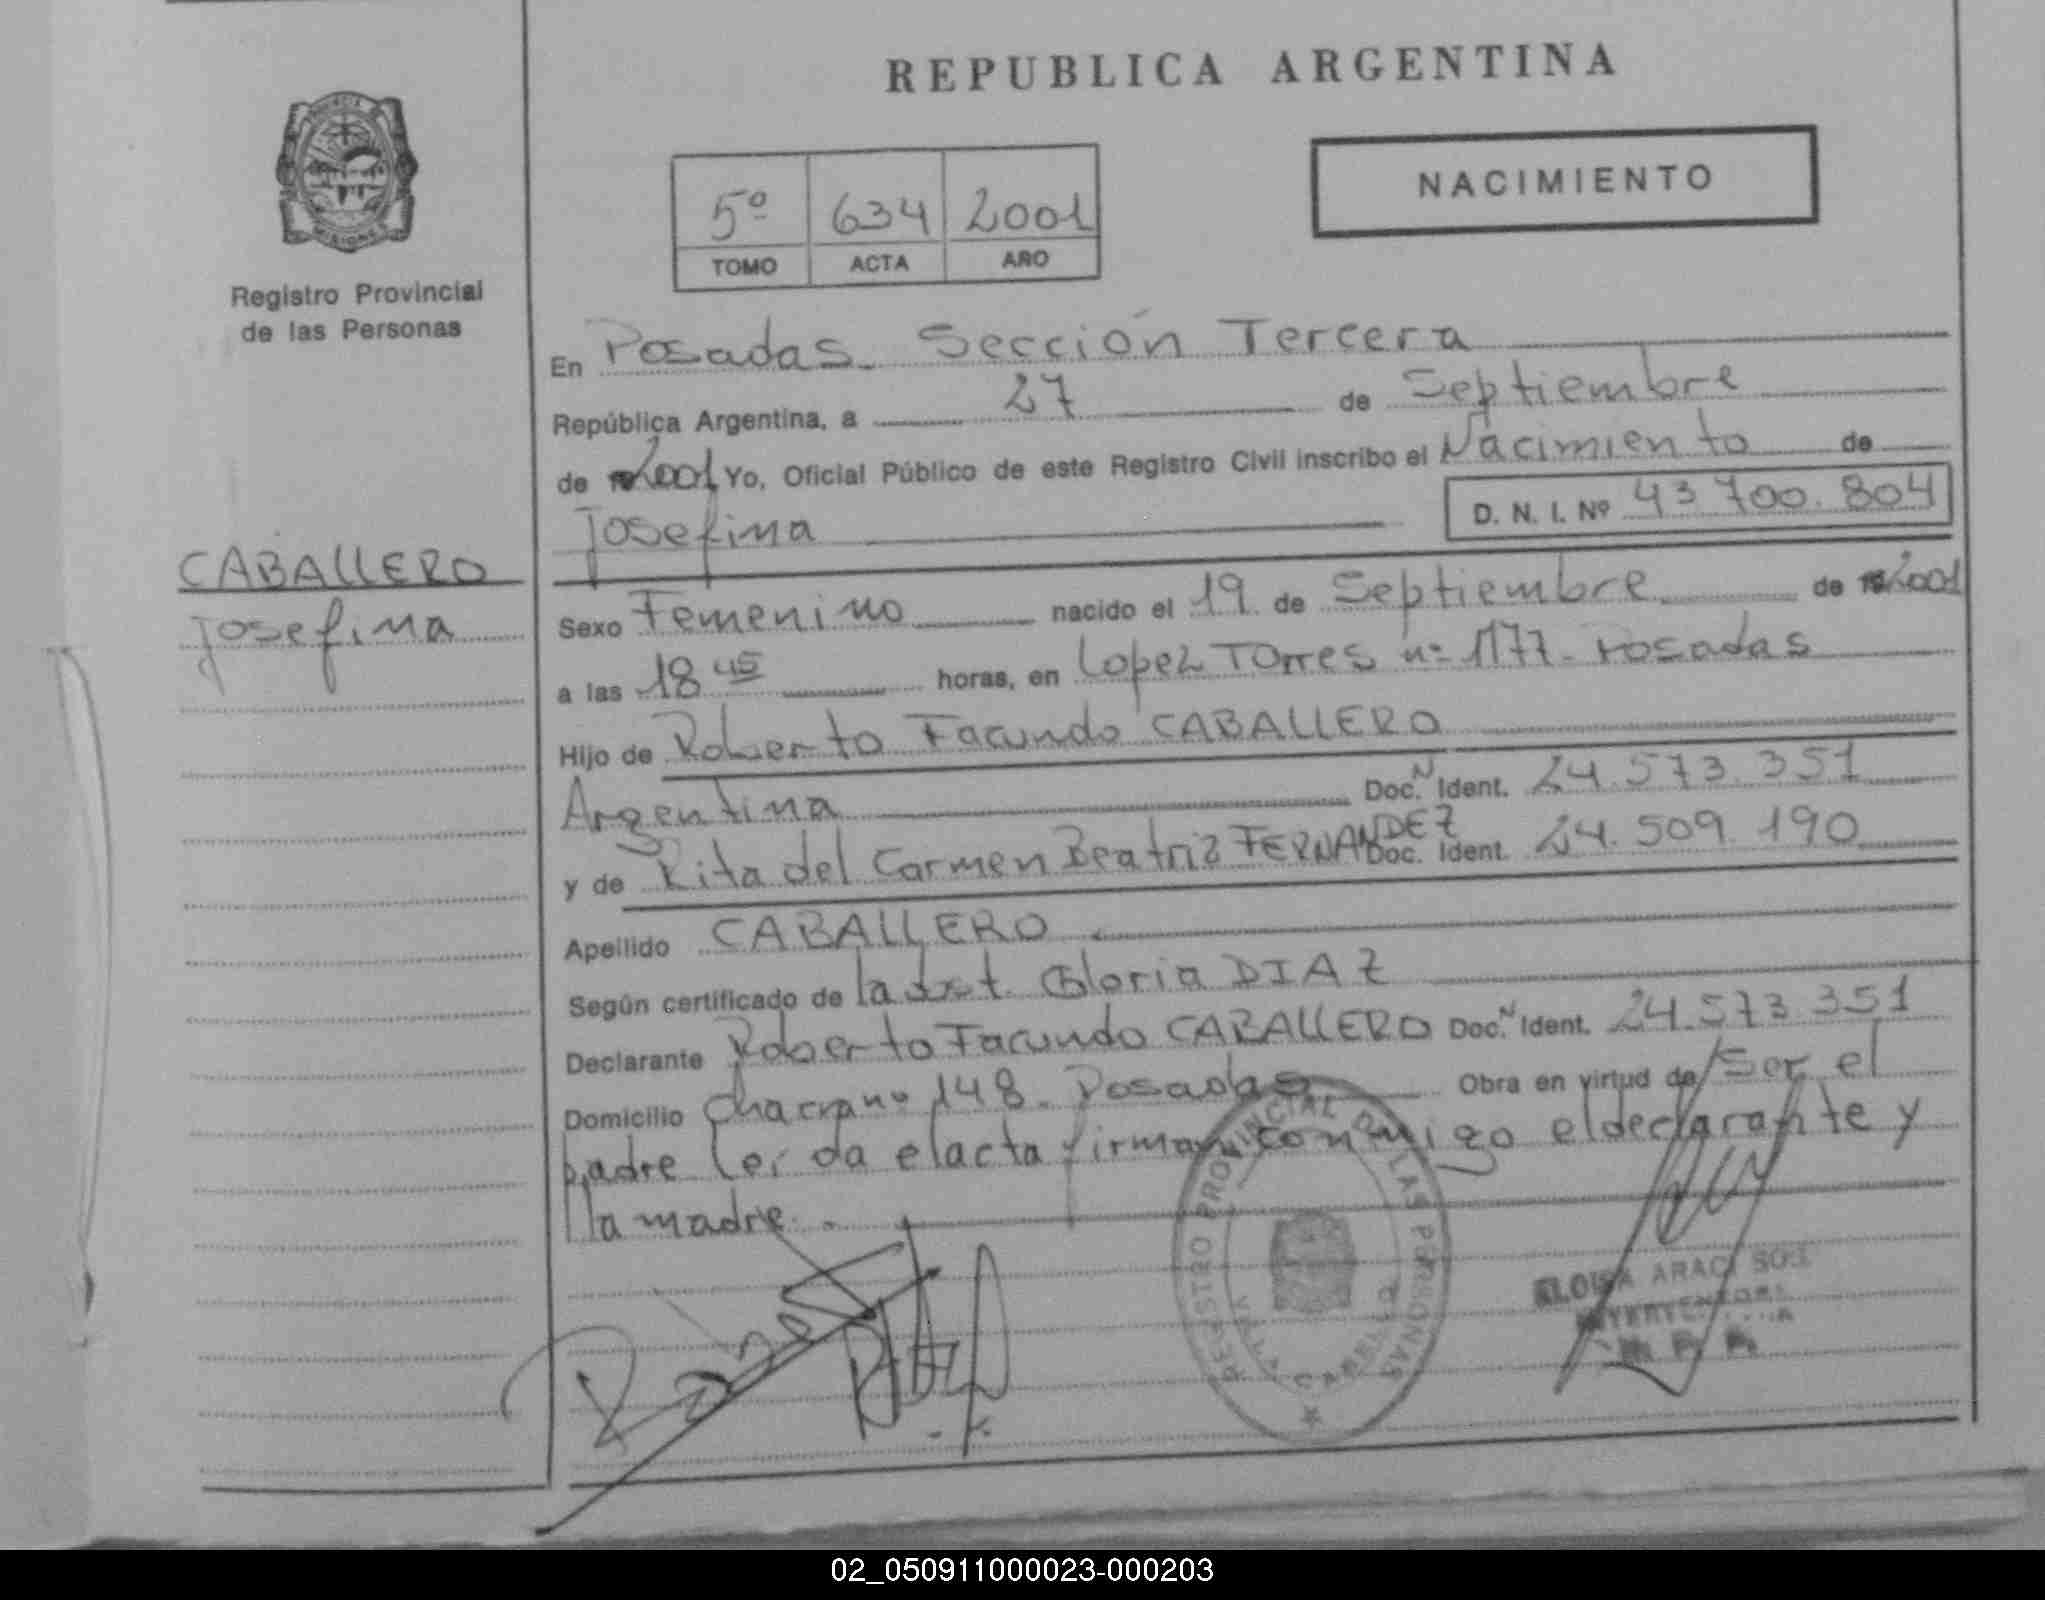 REPUBLICA ARGENTINA
NACIMIENTO
5º 634 2001
TOMO ACTA AÑO
MISIONES
Registro Provincial
de las Personas
En Posadas. Sección Tercera
República Argentina, a 27 de Septiembre
de 2001 Yo, Oficial Público de este Registro Civil inscribo el Nacimiento de
Josefina D. N. I. Nº 43.700.804
CABALLERO
Josefina
Sexo Femenino nacido el 19 de Septiembre de 2001
a las 18 45 horas, en Lopez Torres nº 1177- Posadas
Hijo de Roberto Facundo CABALLERO
Argentina Doc. N Ident. 24.573.351
y de Rita del Carmen Beatriz FERNANDEZ Doc. Ident. 24.509.190
Apellido CABALLERO
Según certificado de la Obst. Gloria DIAZ
Declarante Roberto Facundo CABALLERO Doc. N Ident. 24.573.351
Domicilio Chacra nº 148. Posadas Obra en virtud de Ser el
padre Leida el acta firman conmigo el declarante y
la madre.
REGISTRO PROVINCIAL DE LAS PERSONAS
VILLA CABELLO
02_050911000023-000203